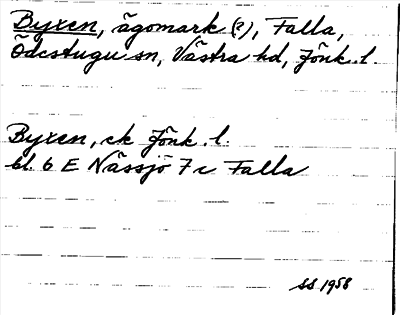 Byxen, ägomark (?), Falla,
Ödestugu sn, Västra hd, Jönk. l.
Byxen, ek Jönk. l.
bl. 6 E Nässjö 7 c Falla
SS 1958